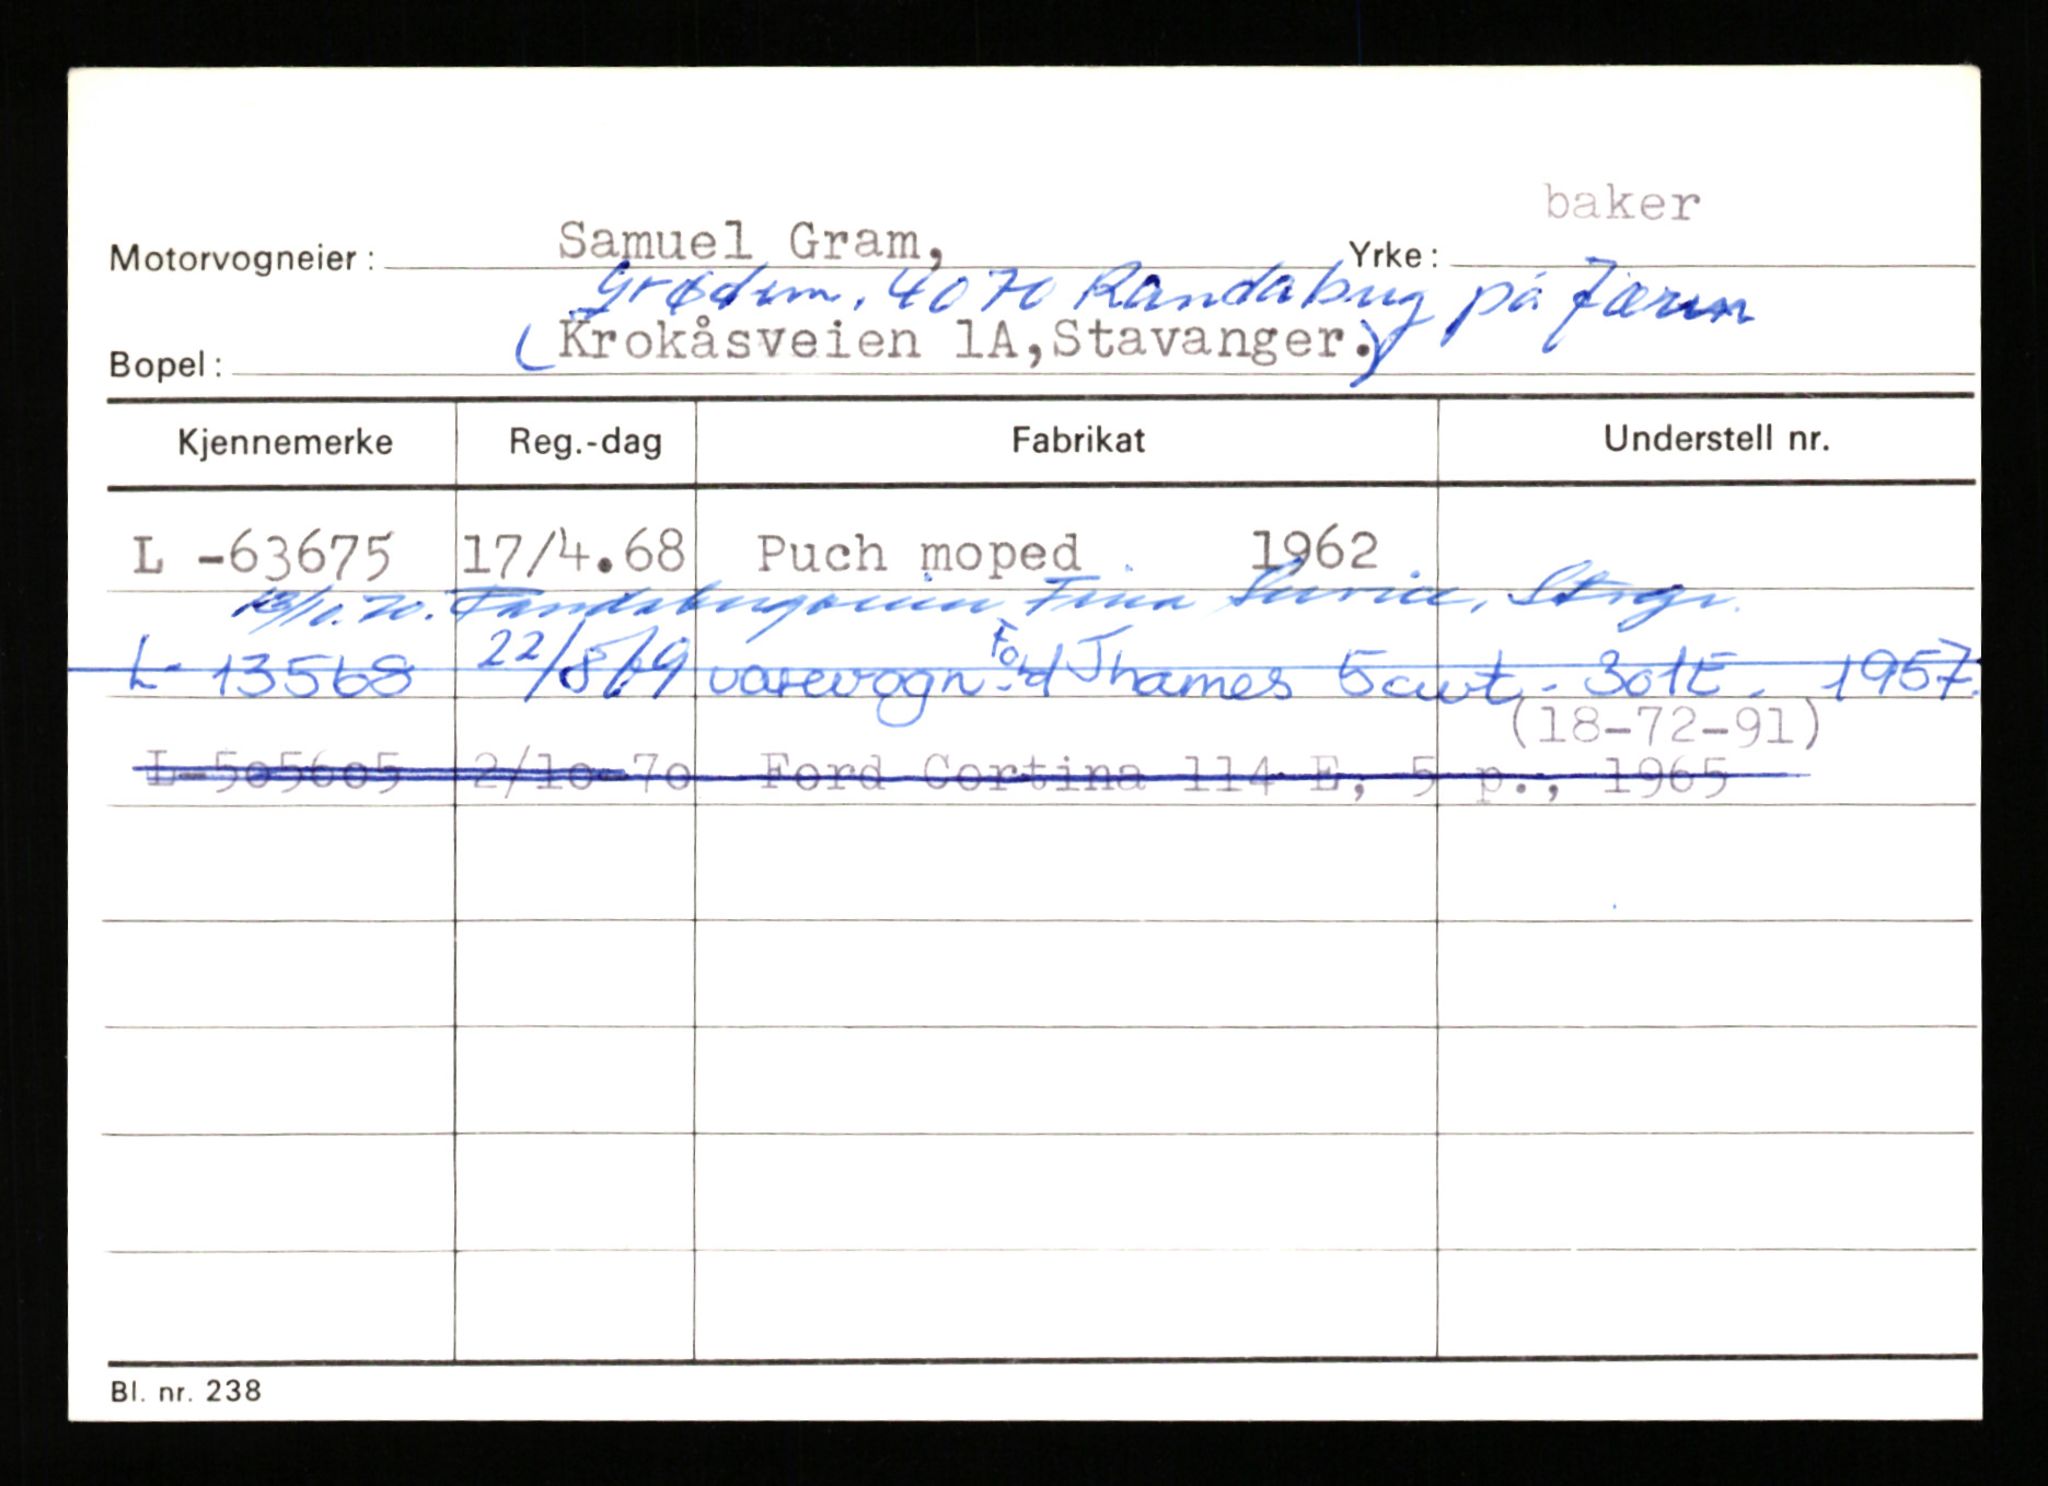 baker
Motorvogneier: Samuel Gram, Yrke:
Grødem, 4070 Randabug på Jæren
Bopel: (Krokåsveien 1A, Stavanger.)
Kjennemerke Reg.-dag Fabrikat Understell nr.
L -63675 17/4.68 Puch moped 1962
70. Fina Service, Stvgr.
L- 13568 22/8/69 varevogn Ford Thames 5cwt - 301E - 1957.
(18-72-91)
L-505605 2/10-70 Ford Cortina 114 E, 5 p., 1965
Bl. nr. 238